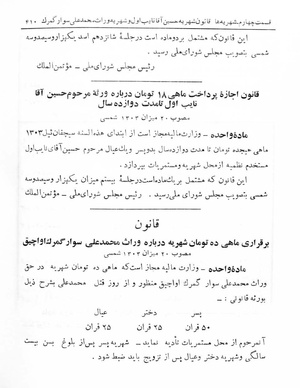 قسمت چهارم شهریه‌ها قانون شهریه حسین آقا نایب اول و شهریه وراث محمدعلی سوار گمرك ۳۱۰
این قانون که مشتمل بر دو ماده است در جلسه شانزدهم اسد یکهزار و سیصد و سه
شمسی بتصویب مجلس شورای ملی رسید .
رئیس مجلس شورای ملی - مؤتمن الملك
قانون اجازه پرداخت ماهی ۱۸ تومان درباره ورثه مرحوم حسین آقا
نایب اول تا مدت دوازده سال
مصوب ۲۰ میزان ۱۳۰۳ شمسی
مادۀ واحده - وزارت مالیه مجاز است از ابتدای هذه السنه سیچقان ئیل ۱۳۰۳
ماهی هیجده تومان تا مدت دوازده سال بدو پسر و یك عیال مرحوم حسین آقای نایب اول
مستخدم نظمیه از محل مستمریات بپردازد .
این قانون که مشتمل بر یك ماده است در جلسه بیستم میزان یکهزار و سیصد و سه
شمسی بتصویب مجلس شورای ملی رسید . رئیس مجلس شورای ملی - مؤتمن الملك
قانون
برقراری ماهی ده تومان شهریه درباره وراث محمدعلی سوار گمرك اواجیق
مصوب ۲۰ میزان ۱۳۰۳ شمسی
مادۀ واحده - وزارت مالیه مجاز است که ماهی ده تومان شهریه در حق
وراث محمدعلی سوار گمرك اواجیق منظور و از روز قتل محمدعلی بشرح ذیل
بورثه قانونی : -
پسر دختر عیال
۵۰ قران ۲۵ قران ۲۵ قران
آنمرحوم از محل مستمریات تأدیه نماید - شهریه پسر پس از بلوغ بسن بیست
سالگی و شهریه دختر و عیال پس از تزویج باید ضبط شود .